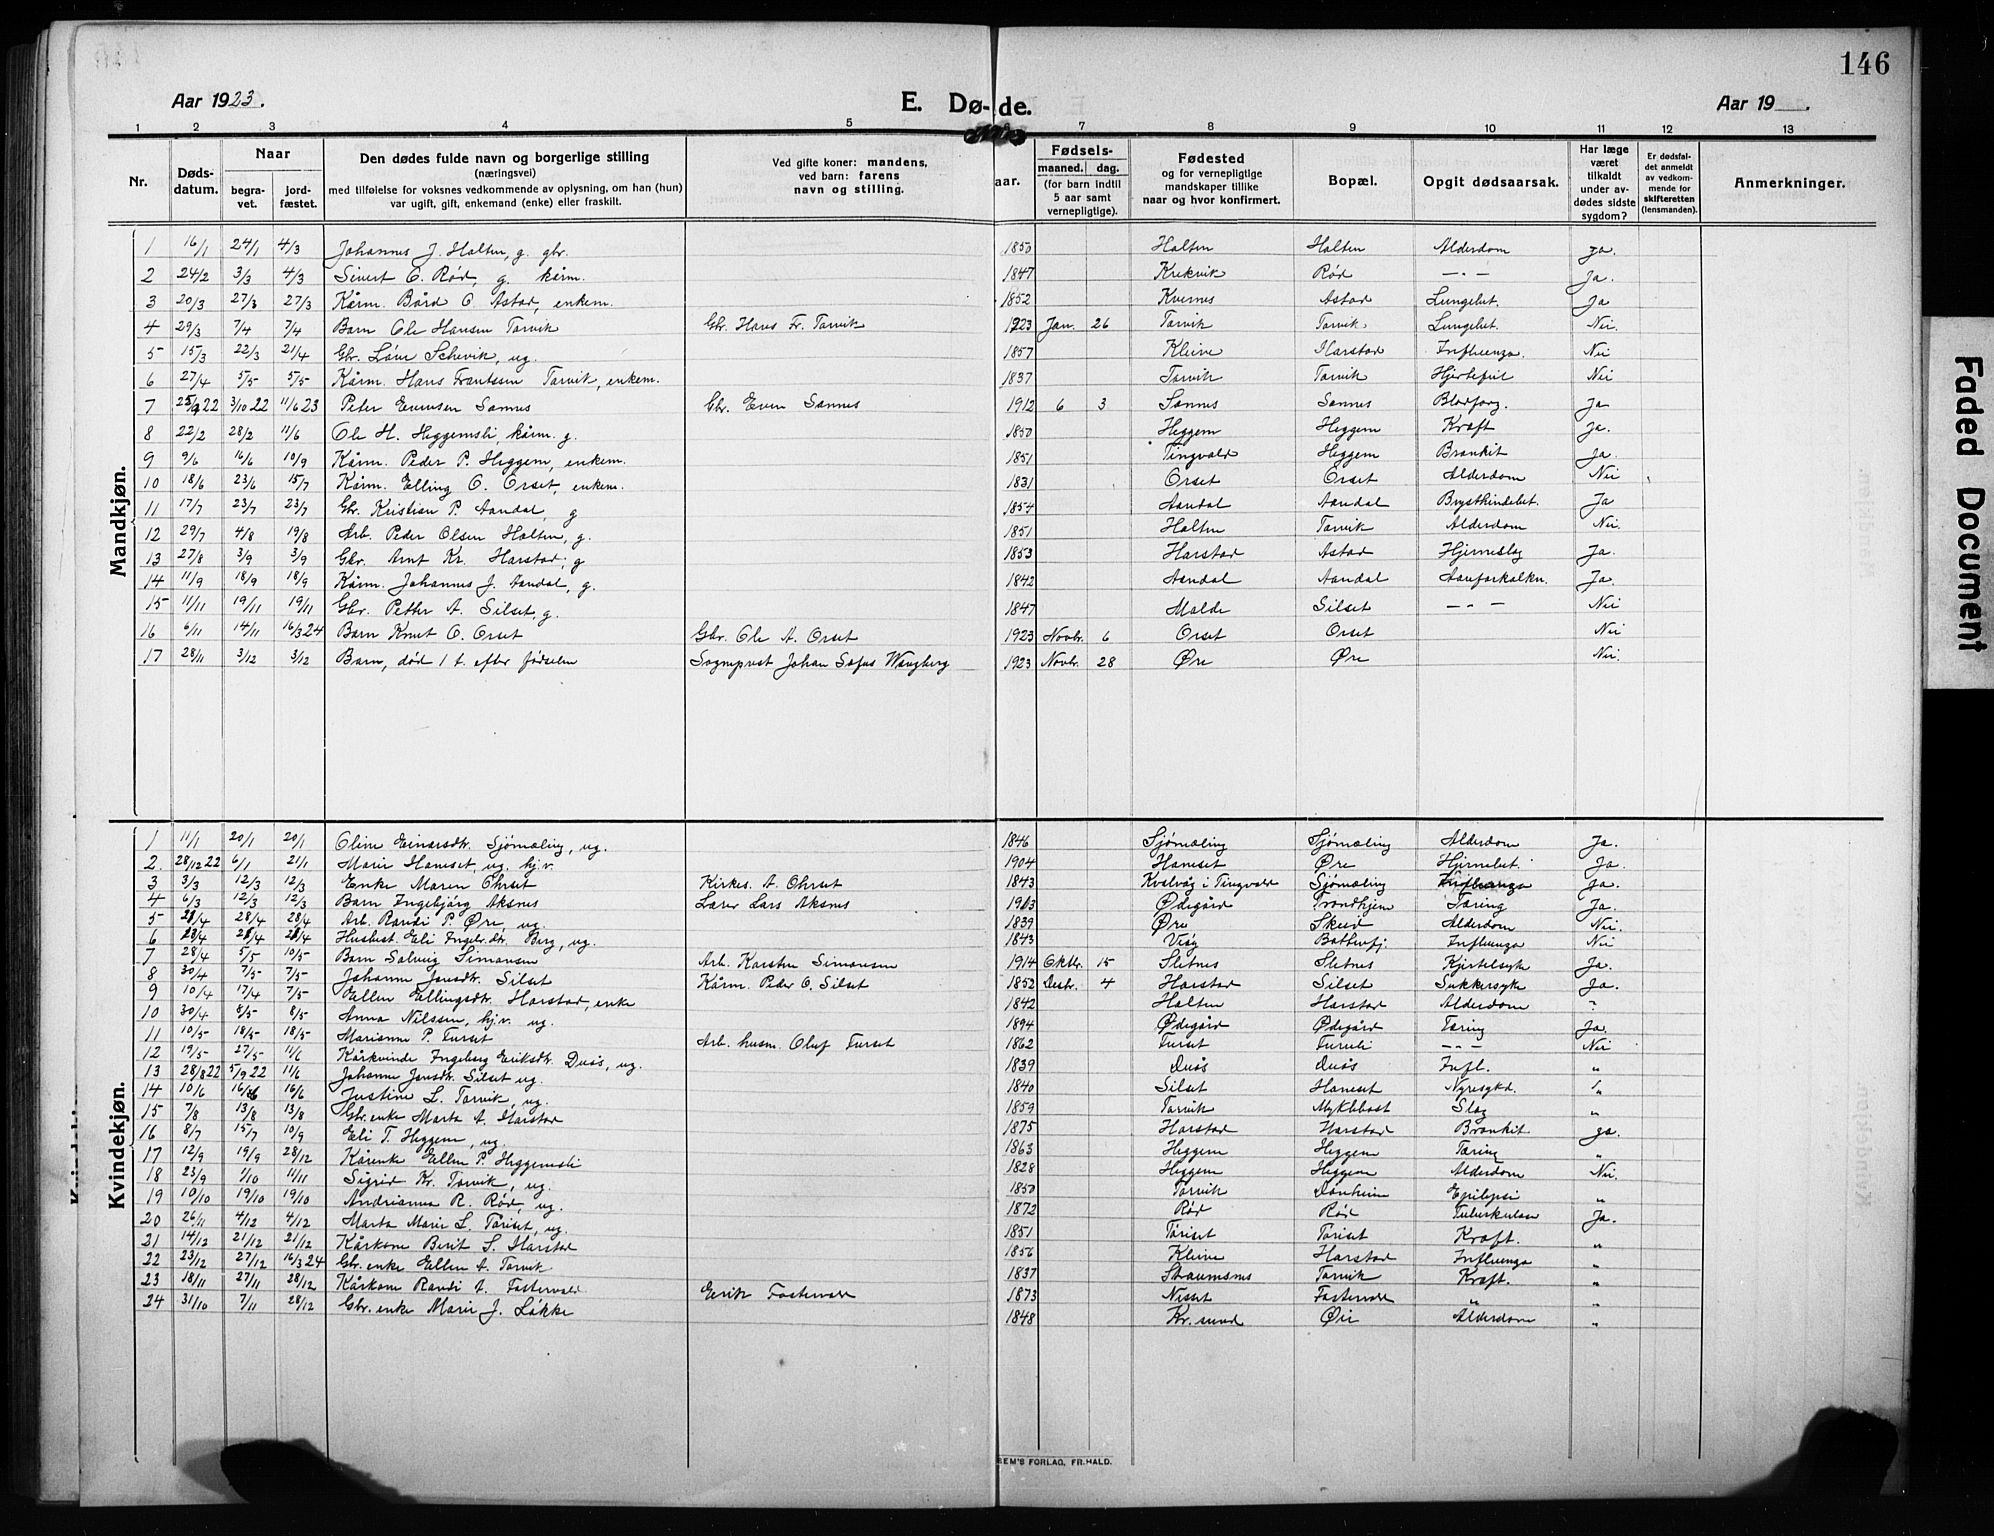 146
Aar 1923.
E. Dø-de.
Aar 19 .
1 2 3 4 5 7 8 9 10 11 12 13
Nr.
Døds-datum.
Naar
begra-vet.
jord-fæstet.
Den dødes fulde navn og borgerlige stilling
(næringsvei)
med tilføielse for voksnes vedkommende av oplysning, om han (hun)
var ugift, gift, enkemand (enke) eller fraskilt.
Ved gifte koner: mandens,
ved barn: farens
navn og stilling.
aar.
Fødsels-
maaned. dag.
(for barn indtil
5 aar samt
vernepligtige).
Fødested
og for vernepligtige
mandskaper tillike
naar og hvor konfirmert.
Bopæl.
Opgit dødsaarsak.
Har læge
været
tilkaldt
under av-
dødes sidste
sygdom?
Er dødsfal-
det anmeldt
av vedkom-
mende for
skifteretten
(lensmanden).
Anmerkninger.
Mandkjøn.
1 16/1 24/1 4/3 Johannes J. Halten, g. gbr. 1850 Halten Halten Alderdom Ja.
2 24/2 3/3 4/3 Sivert O. Rød, g. kårm. 1847 Krekvik Rød —"— Ja.
3 20/3 27/3 27/3 Kårm. Bård O. Astad, enkem. 1852 Kvernes Astad Lungebet. Ja
4 29/3 7/4 7/4 Barn Ole Hansen Torvik Gbr. Hans Fr. Torvik 1923 Jan. 26 Torvik Torvik Lungebet. Nei.
5 15/3 22/3 21/4 Gbr. Schevik, ug. 1857 Kleive Harstad Influenza. Nei
6 27/4 5/5 5/5 Kårm. Hans Frantssen Torvik, enkem. 1837 Torvik Torvik Hjertefeil Nei
7 22 3/10 22 11/6 23 Peter Evensen Sannes Gbr. Even Sannes 1912 6 3 Sannes Sannes Blodforg. Ja
8 22/2 28/2 11/6 Ole H. Heggemsli, kårm. g. 1850 Heggem Heggem Kræft Ja.
9 9/6 16/6 10/9 Kårm. Peder P. Heggem, enkem. 1851 Tingvold Heggem Bronkit Ja.
10 18/6 23/6 15/7 Kårm. Elling O. Orset, enkem. 1831 Orset Orset Alderdom Nei
11 17/7 23/7 23/7 Gbr. Kristian P. Aandal, g 1854 Aandal Aandal Brystkindebet. Ja
12 29/7 4/8 19/8 Arb. Peder Olsen Halten, g. 1851 Halten Torvik Alderdom Nei.
13 27/8 3/9 3/9 Gbr. Arnt Kr. Harstad, g 1853 Harstad Astad Hjerneslag Ja.
14 11/9 18/9 18/9 Kårm. Johannes J. Aandal, g. 1842 Aandal Aandal Aareforkalkn. Ja.
15 11/11 19/11 19/11 Gbr. Petter A. Silset, g. 1847 Molde Silset —"— Nei
16 6/11 14/11 16/3 24 Barn Knut O. Orset Gbr. Ole A. Orset 1923 Novbr. 6 Orset Orset Nei
17 28/11 3/12 3/12 Barn, død 1 t. efter fødselen Sogneprest Johan Sofus Wangberg 1923 Novbr. 28 Øre Øre Nei.
Kvindekjøn.
1 11/1 20/1 20/1 Oline Einarsdtr. Sjømæling, ug. 1846 Sjømæling Sjømæling Alderdom Ja.
2 28/12 22 6/1 21/1 Marie Haneset, ug. hj.v. 1904 Haneset Øre Hjernebet. Ja.
3 3/3 12/3 12/3 Enke Maren Ohrset Kirkes. A. Ohrset 1843 Kvalvåg i Tingvold Sjømæling Influenza Ja.
4 6/3 12/3 12/3 Barn Ingebjørg Aksnes Lærer Lars Aksnes 1913 Ødegård Trondhjem Tæring Ja.
5 28/4 28/4 Arb. Randi P. Øre, ug. 1839 Øre Skeid Alderdom Nei.
6 Husbest. Eli Ingebr.dtr. Berg, ug. 1843 Visg Battenfj. Influenza Nei
7 28/4 5/5 10/5 Barn Solveig Simonsen Arb. Karsten Simonsen 1914 Oktbr. 15 Sletnes Sletnes Kjertelsyke Ja.
8 30/4 7/5 7/5 Johanne Jonsdtr. Silset Kårm. Peder O. Silset 1852 Desbr. 4 Harstad Silset Sukkersyke Ja.
9 10/4 17/4 7/5 Ellen Ellingsdtr. Harstad, enke 1842 Halten Harstad Alderdom "
10 30/4 8/5 8/5 Anna Nilssen, hj.v. ug. 1894 Ødegård Ødegård Tæring Ja.
11 10/5 18/5 18/5 Marianne P. Furset Arb. husm. Oluf Furset 1862 Furset Fureli —"— Nei
12 19/5 27/5 11/6 Kårkvinde Ingeborg Eriksdtr. Duås, ug. 1839 Duås Duås Infl. "
13 28/8 22 5/9 22 11/6 Johanne Jonsdtr. Silset ug. 1840 Silset Haneset Nyresykd. "
14 10/6 16/6 16/6 Justine L. Torvik, ug. 1859 Torvik Myklebost Slag "
15 7/8 13/8 13/8 Gbr. enke Marta A. Harstad 1875 Harstad Harstad Bronkit ja.
16 8/7 15/7 10/9 Eli T. Heggem, ug. 1863 Heggem Heggem Tæring "
17 12/9 19/9 28/12 Kårenke Ellen P. Heggemsli 1828 Heggem Heggem Alderdom Nei.
18 23/9 1/10 11/11 Sigrid Kr. Torvik, ug. 1850 Torvik Epilepsi "
19 10/10 19/10 19/10 Andrianna R. Rød, ug. 1872 Rød Rød Tuberkulose Ja.
20 26/11 4/12 4/12 Marta Marie L. Toriset, ug. 1851 Toriset Toriset Kræft. "
21 14/12 21/12 21/12 Kårkone Berit S. Harstad 1856 Kleive Harstad Influenza "
22 23/12 27/12 16/3 24 Gbr. enke Ellen A. Torvik 1837 Straumsnes Torvik Kræft. "
23 18/11 27/11 28/12 Kårkone Randi A. Fostervold Erik Fostervold 1873 Nesset Fostervold " "
24 31/10 7/11 28/12 Gbr. enke Marie J. Løkke 1848 Kr.sund Øie Alderdom "
EM'S FORLAG, FR. HALD.
Faded Document